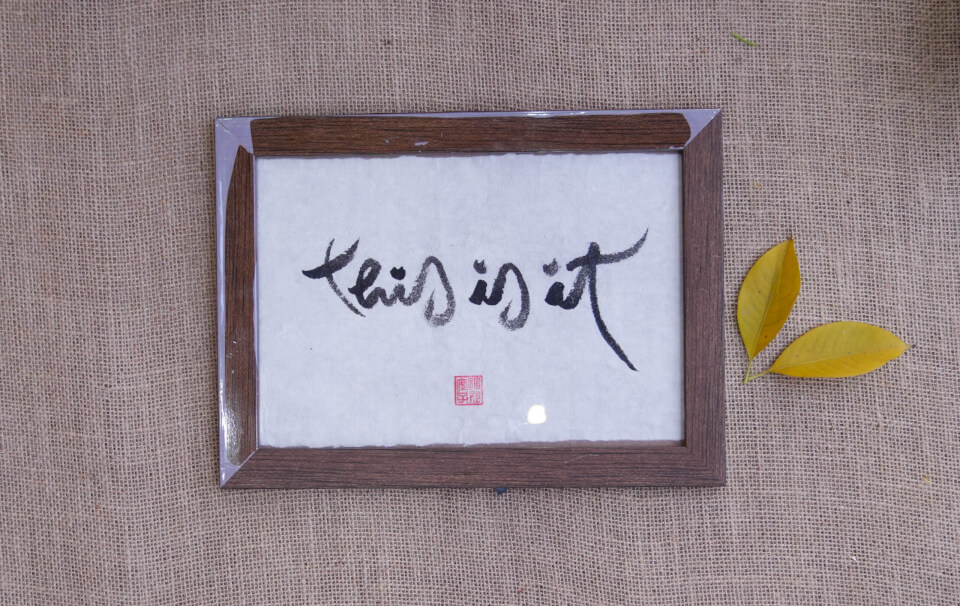 this is it